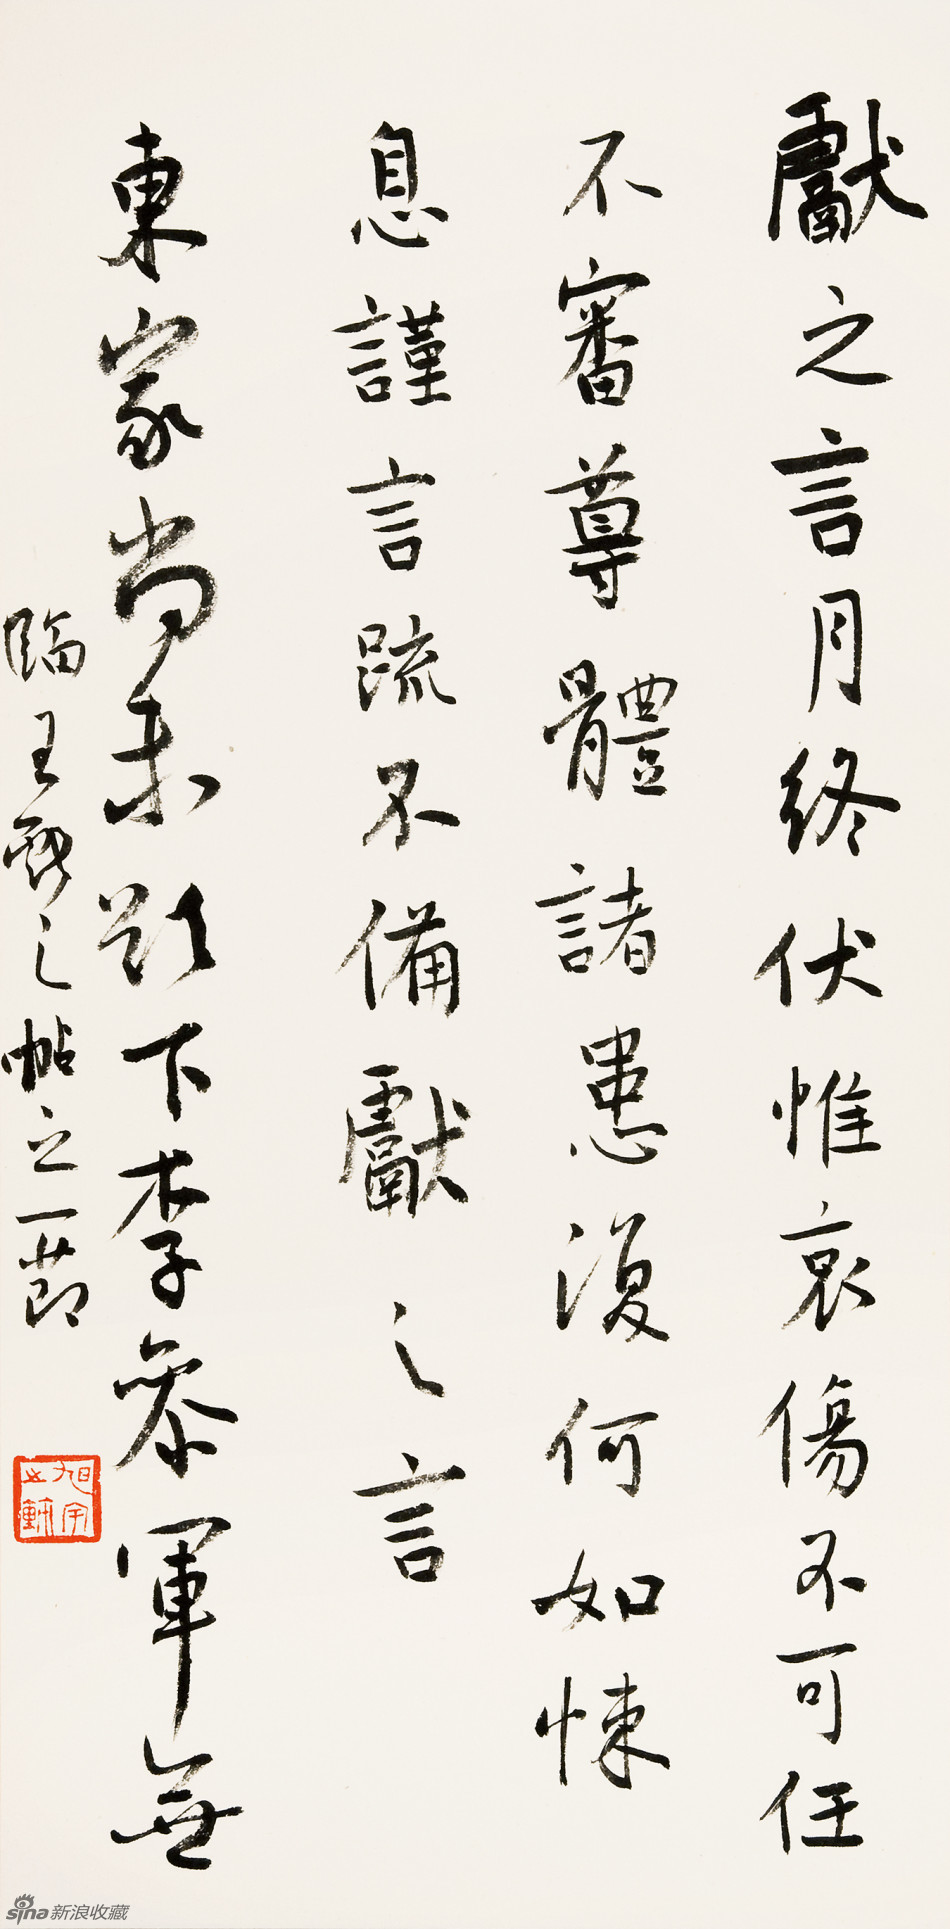 獻之言月終伏惟哀傷不可任
不審尊體諸患復何如悚
息謹言疏不備獻之言
東家尚未
下李參軍無
臨王獻之帖之一節
旭宇之軒
sina新浪收藏